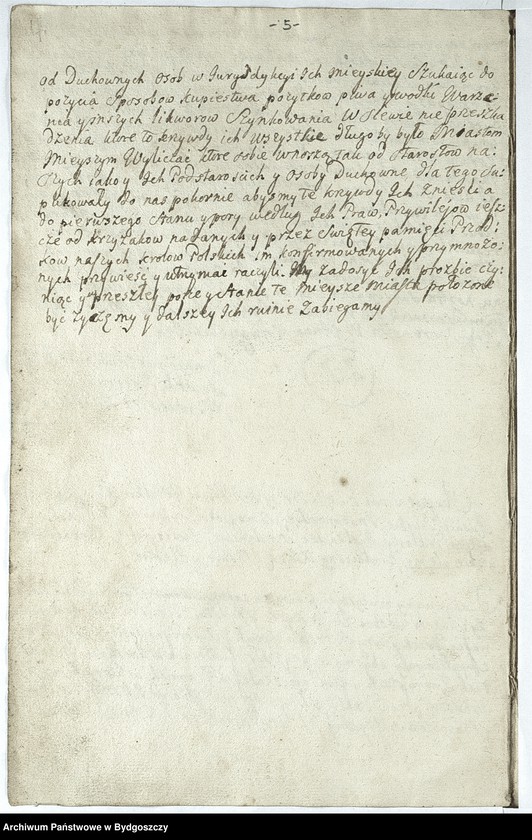 -5-
od Duchownych osob w Jurysdykcyi Ich Mieyskiey Szukaiąc do
pożycia Sposobow kupiestwa pożytkow piwa y wodki Warze-
nia y inszych likworow Szynkowania Wolewie nie przeszka
dzenia ktore to krzywdy ich wszystkie długo by było Miastom
Mieyszym Wyliczać ktore sobie wnoszą tak od Starostow na:
szych iako y Ich Podstarościch y osoby Duchowne dla tego Su:
plikowały do nas pokornie abyśmy te krzywdy Ich znieśli a
do pierwszego stanu y pory według Ich Praw, Przywileiow iesz:
cze od krzyżakow nadanych y przez Swiętey pamięci Przod:
kow naszych krolow Polskich Im konfirmowanych y przymnożo:
nych przywieść y utrzymać raczyli. My zadosyć Ich proźbie czy:
niąc y w przeszłey porze y stanie te Mieysze Miasta położone
być życzemy y dalszey Ich ruinie zabiegamy
Archiwum Państwowe w Bydgoszczy